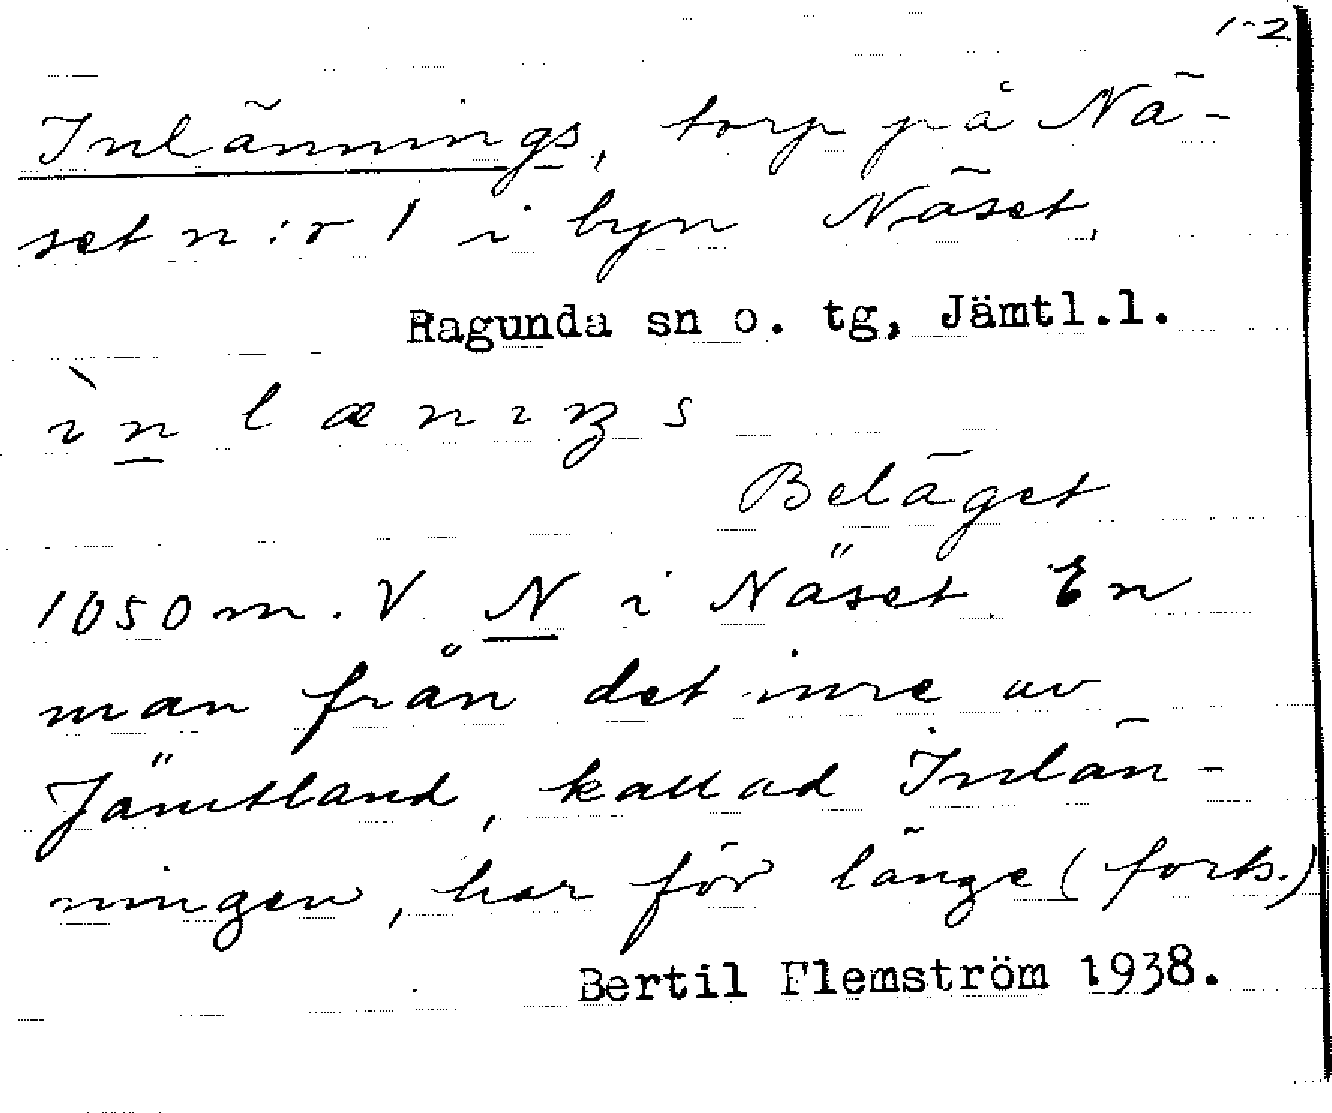 1-2
Inlännings, torp på Nä-
set n:r 1 i byn Näset,
Ragunda sn o. tg, Jämtl.l.
ìn læniŋs
Beläget
1050 m. V N i Näset. En
man från det inre av
Jämtland, kallad Inlän-
ningen, har för länge (forts.)
Bertil Flemström 1938.